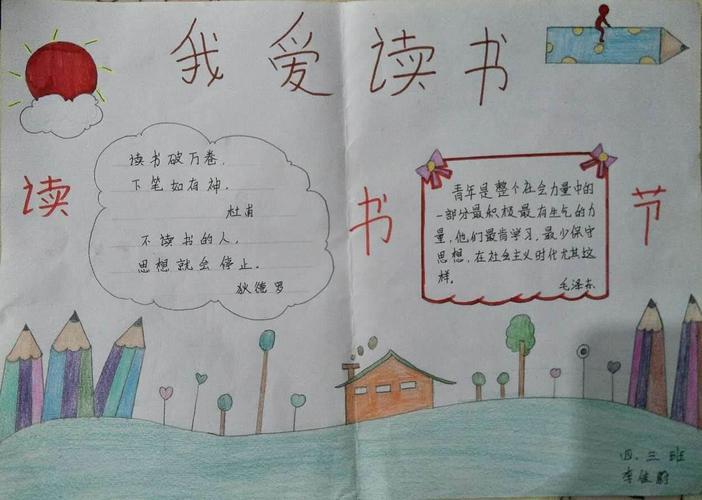 我爱读书
读书节
读书破万卷,
下笔如有神.
杜甫
不读书的人,
思想就会停止.
狄德罗
青年是整个社会力量中的
一部分最积极最有生气的力
量,他们最肯学习,最少保守
思想,在社会主义时代尤其这
样。
毛泽东
四.三班